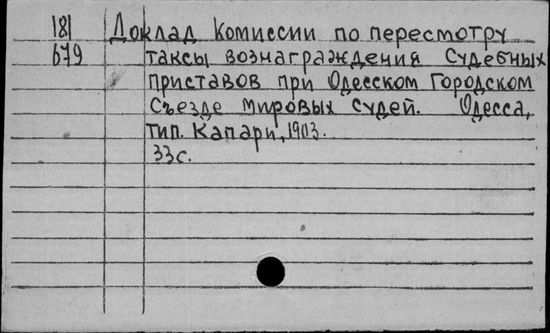 181 Доклад Комиссии по пересмотру
679 таксы вознаграждения Судебных
приставов при Одесском Городском
Съезде Мировых Судей. Одесса,
тип. Капари, 1903.
33с.